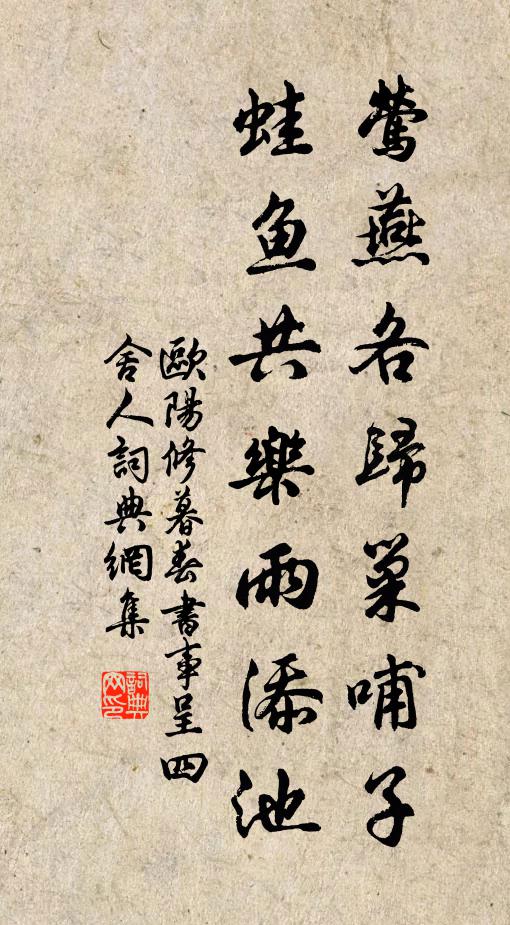 鶯燕各歸巢哺子
蛙魚共樂雨添池
歐陽修暮春書事呈四
舍人詞典網集
詞典網印